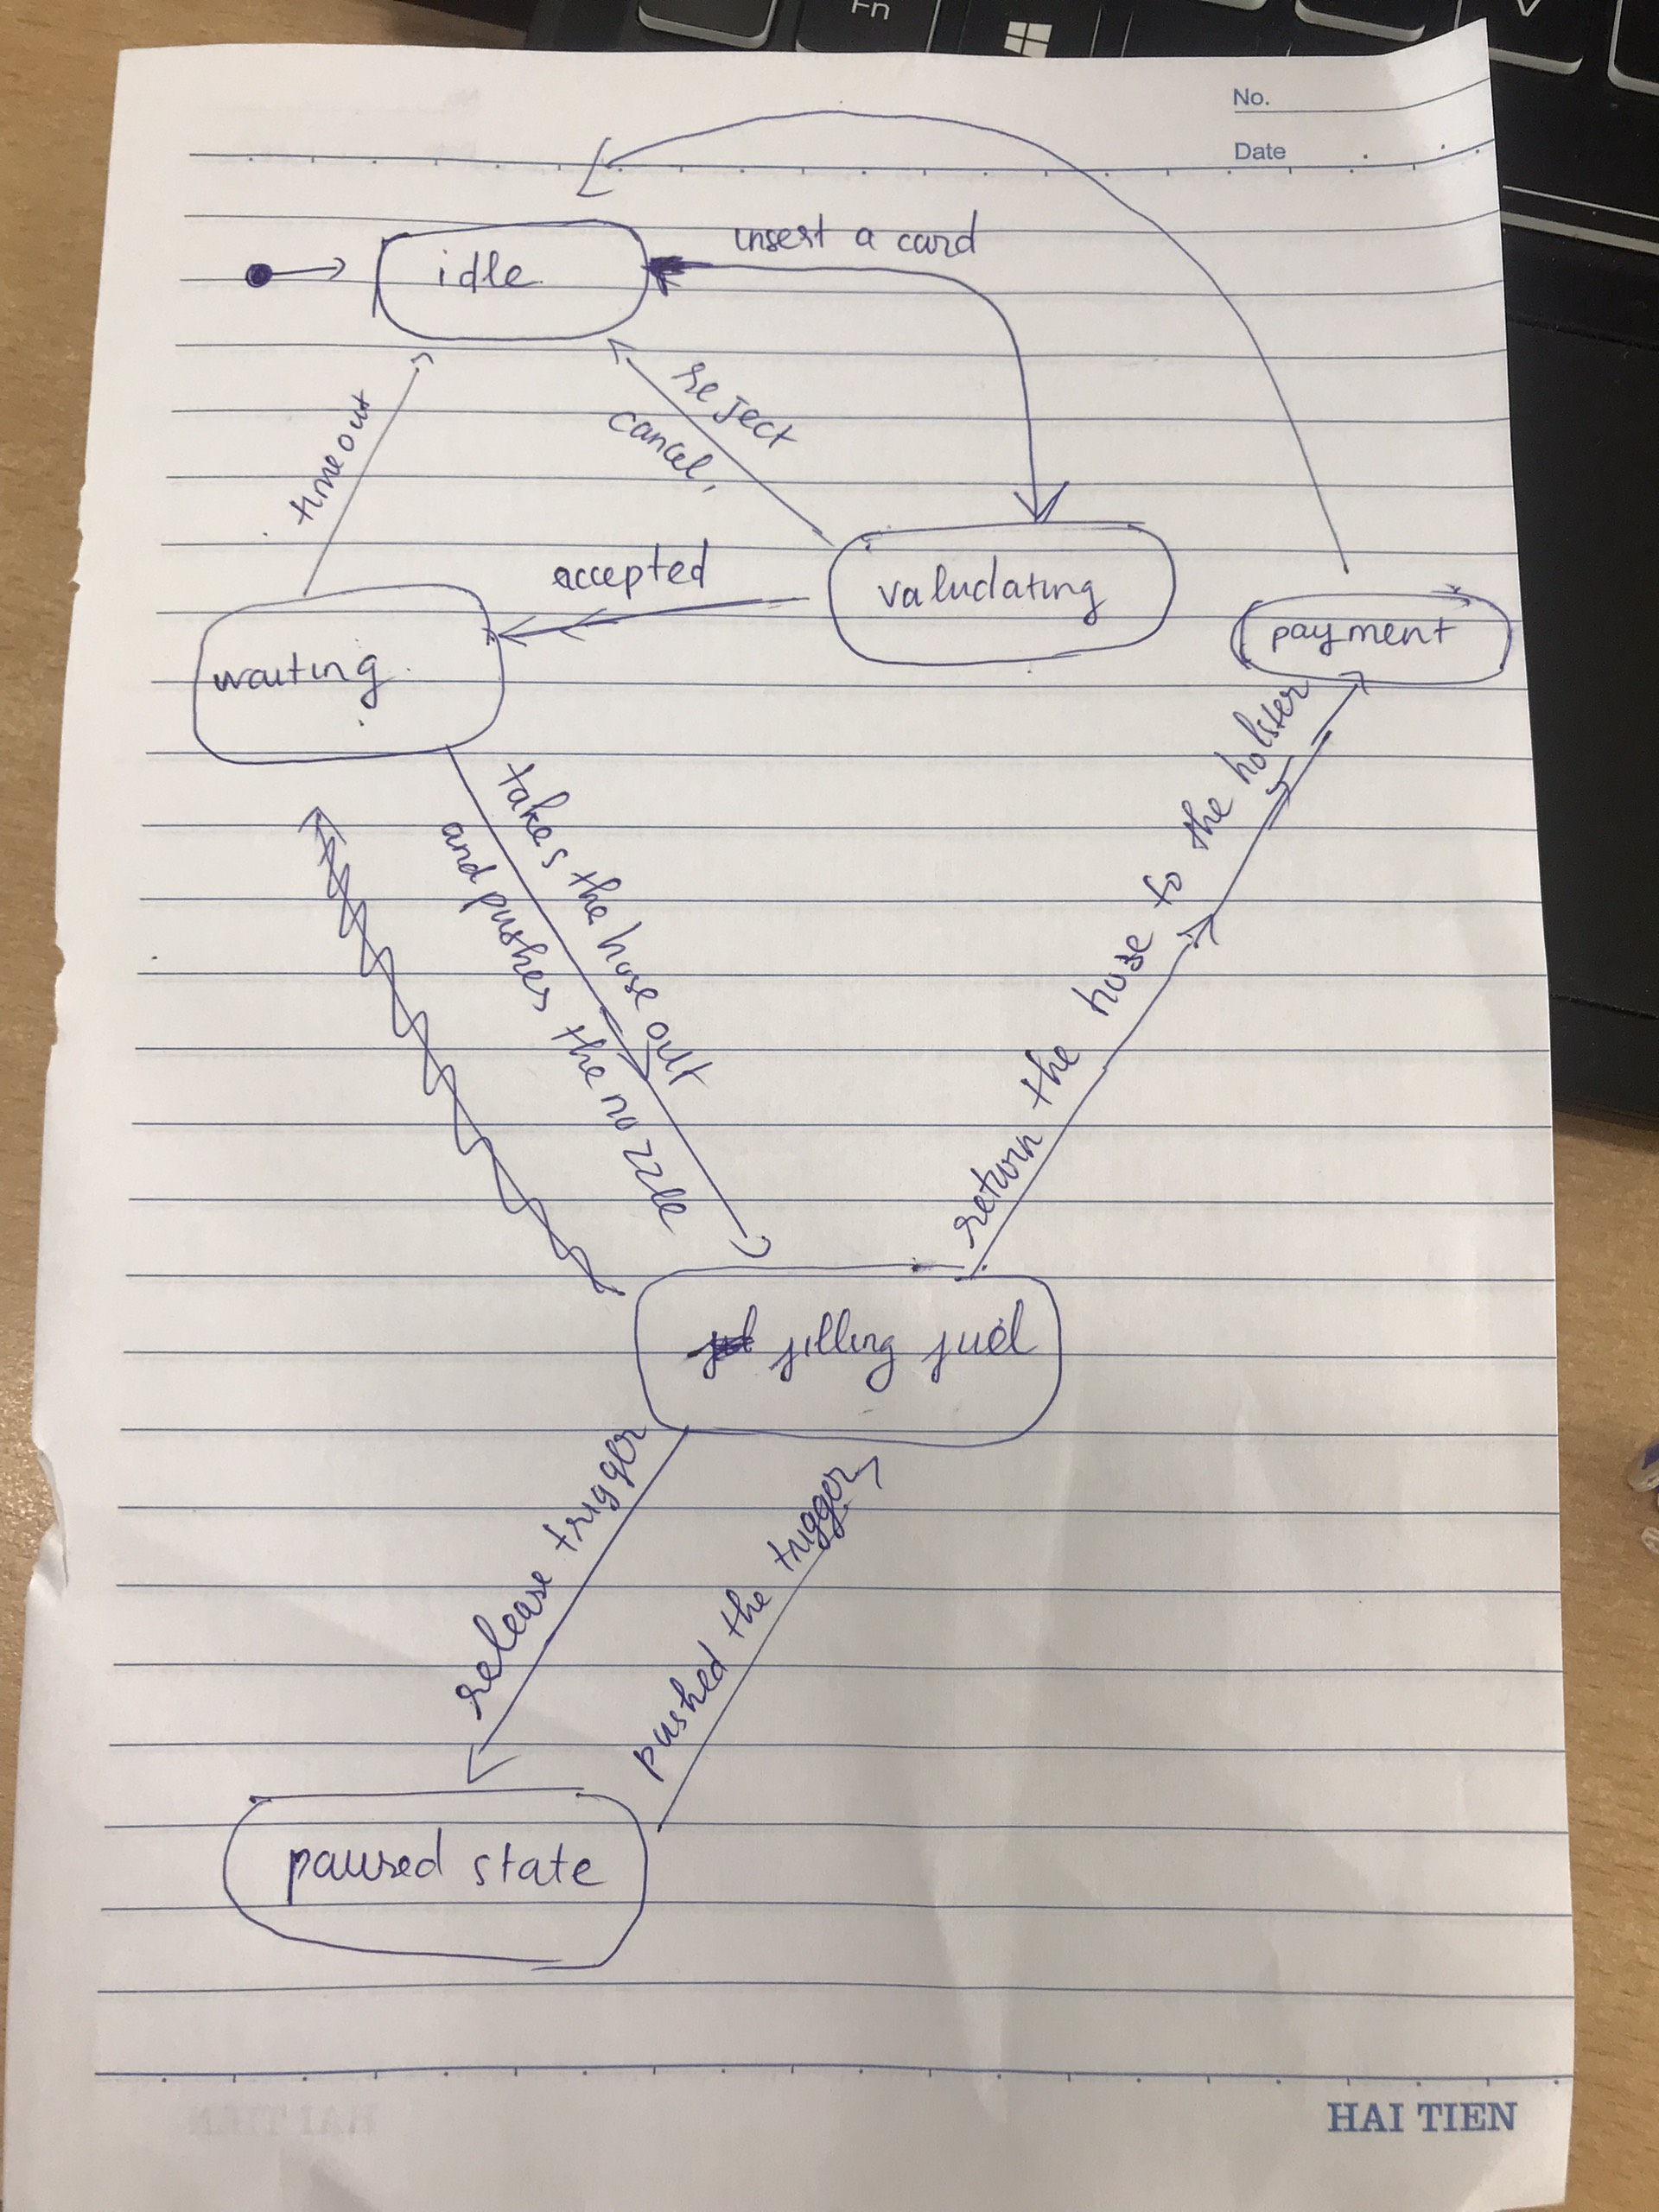 Fn
V
No.
Date
insert a card
idle
reject
cancel,
timeout
accepted
validating
waiting
payment
takes the hose out
and pushes the nozzle
return the hose to the holster
filling fuel
release trigger
pushed the trigger
paused state
HAI TIEN